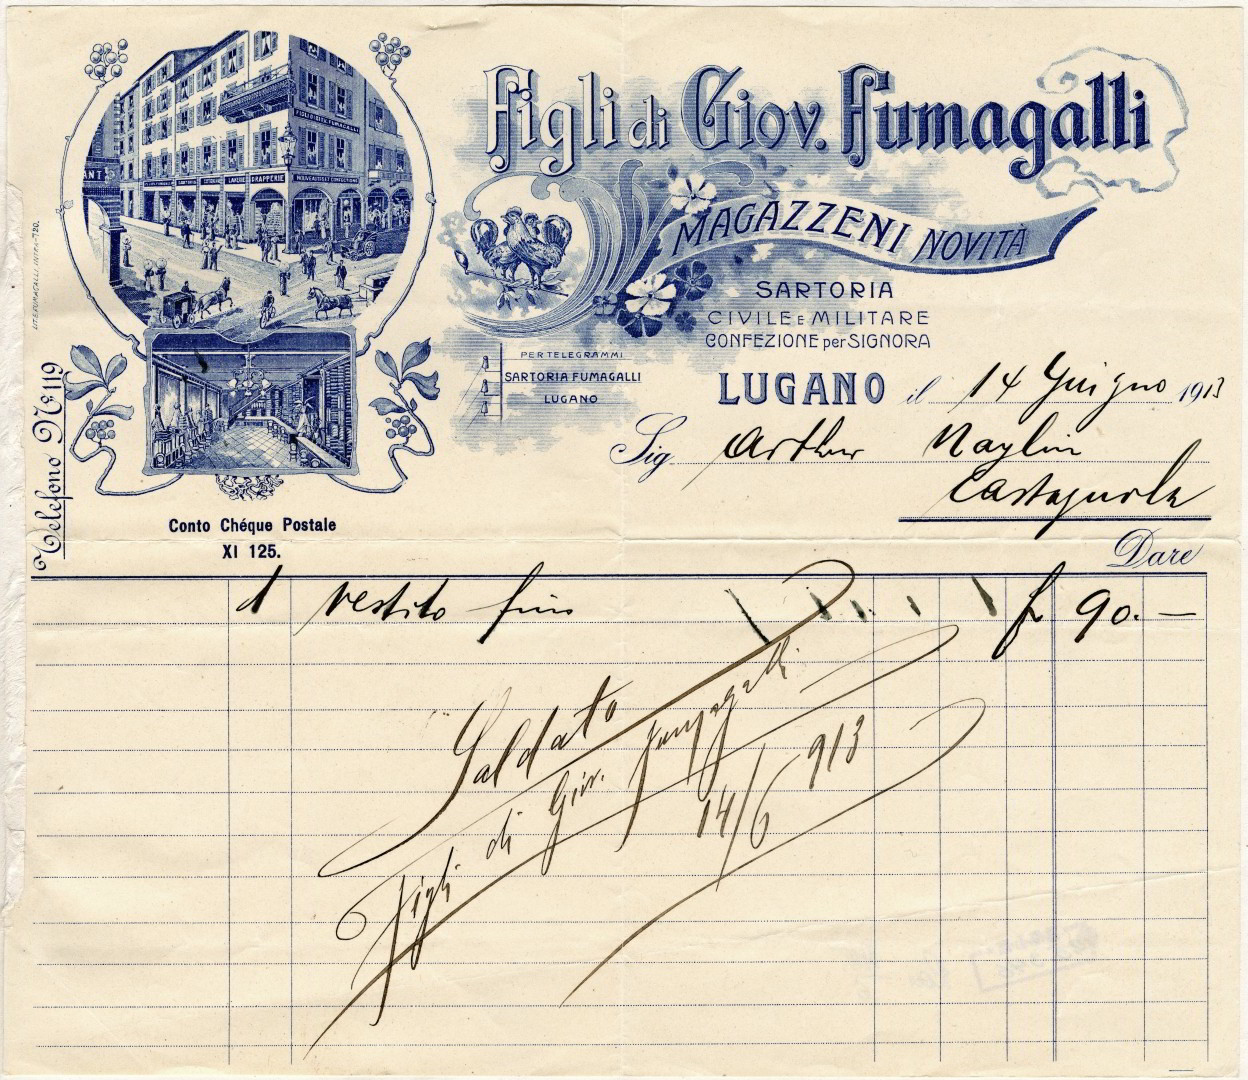 Figli di Giov. Fumagalli
MAGAZZENI NOVITÀ
SARTORIA
CIVILE E MILITARE
CONFEZIONE per SIGNORA
PER TELEGRAMMI
SARTORIA FUMAGALLI
LUGANO
LUGANO il 14 Giugno 1913
Sig. Arthur
Castagnola
Telefono No 119
Conto Chéque Postale
XI 125.
Dare
1 vestito fino f 90.—
Saldato
Figli di Giov. Fumagalli
14/6 913
FIGLI DI GIOV. FUMAGALLI
DRAPPERIE
NOUVEAUTES ET CONFECTIONS
LANERIE